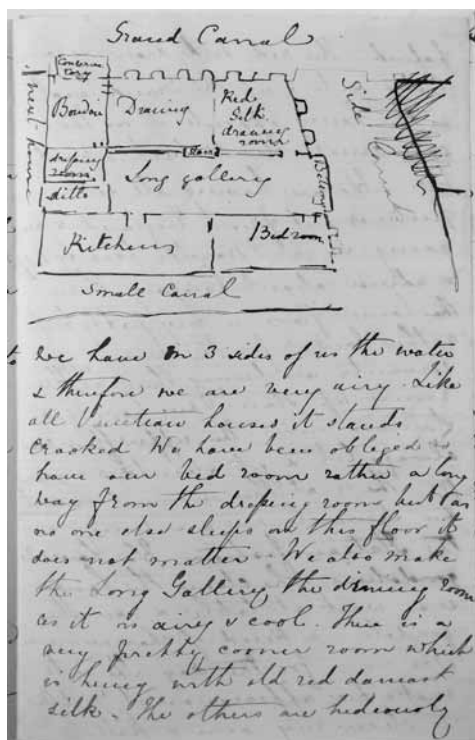 Grand Canal
Conserva
tory
Boudoir
Drawing
Red
Silk
drawing
room
next house
Side Canal
dressing
room
Stairs
ditto
Long gallery
Balcony
Kitchens
Bedroom
Small Canal
We have on 3 sides of us the water
& therefore we are very airy. Like
all Venetian houses it stands
crooked We have been obliged to
have our bed room rather a long
way from the dressing room but as
no one else sleeps on this floor it
does not matter. We also make
the Long Gallery the dining room
as it is airy & cool. There is a
very pretty corner room which
is hung with old red damask
silk. The others are hideously